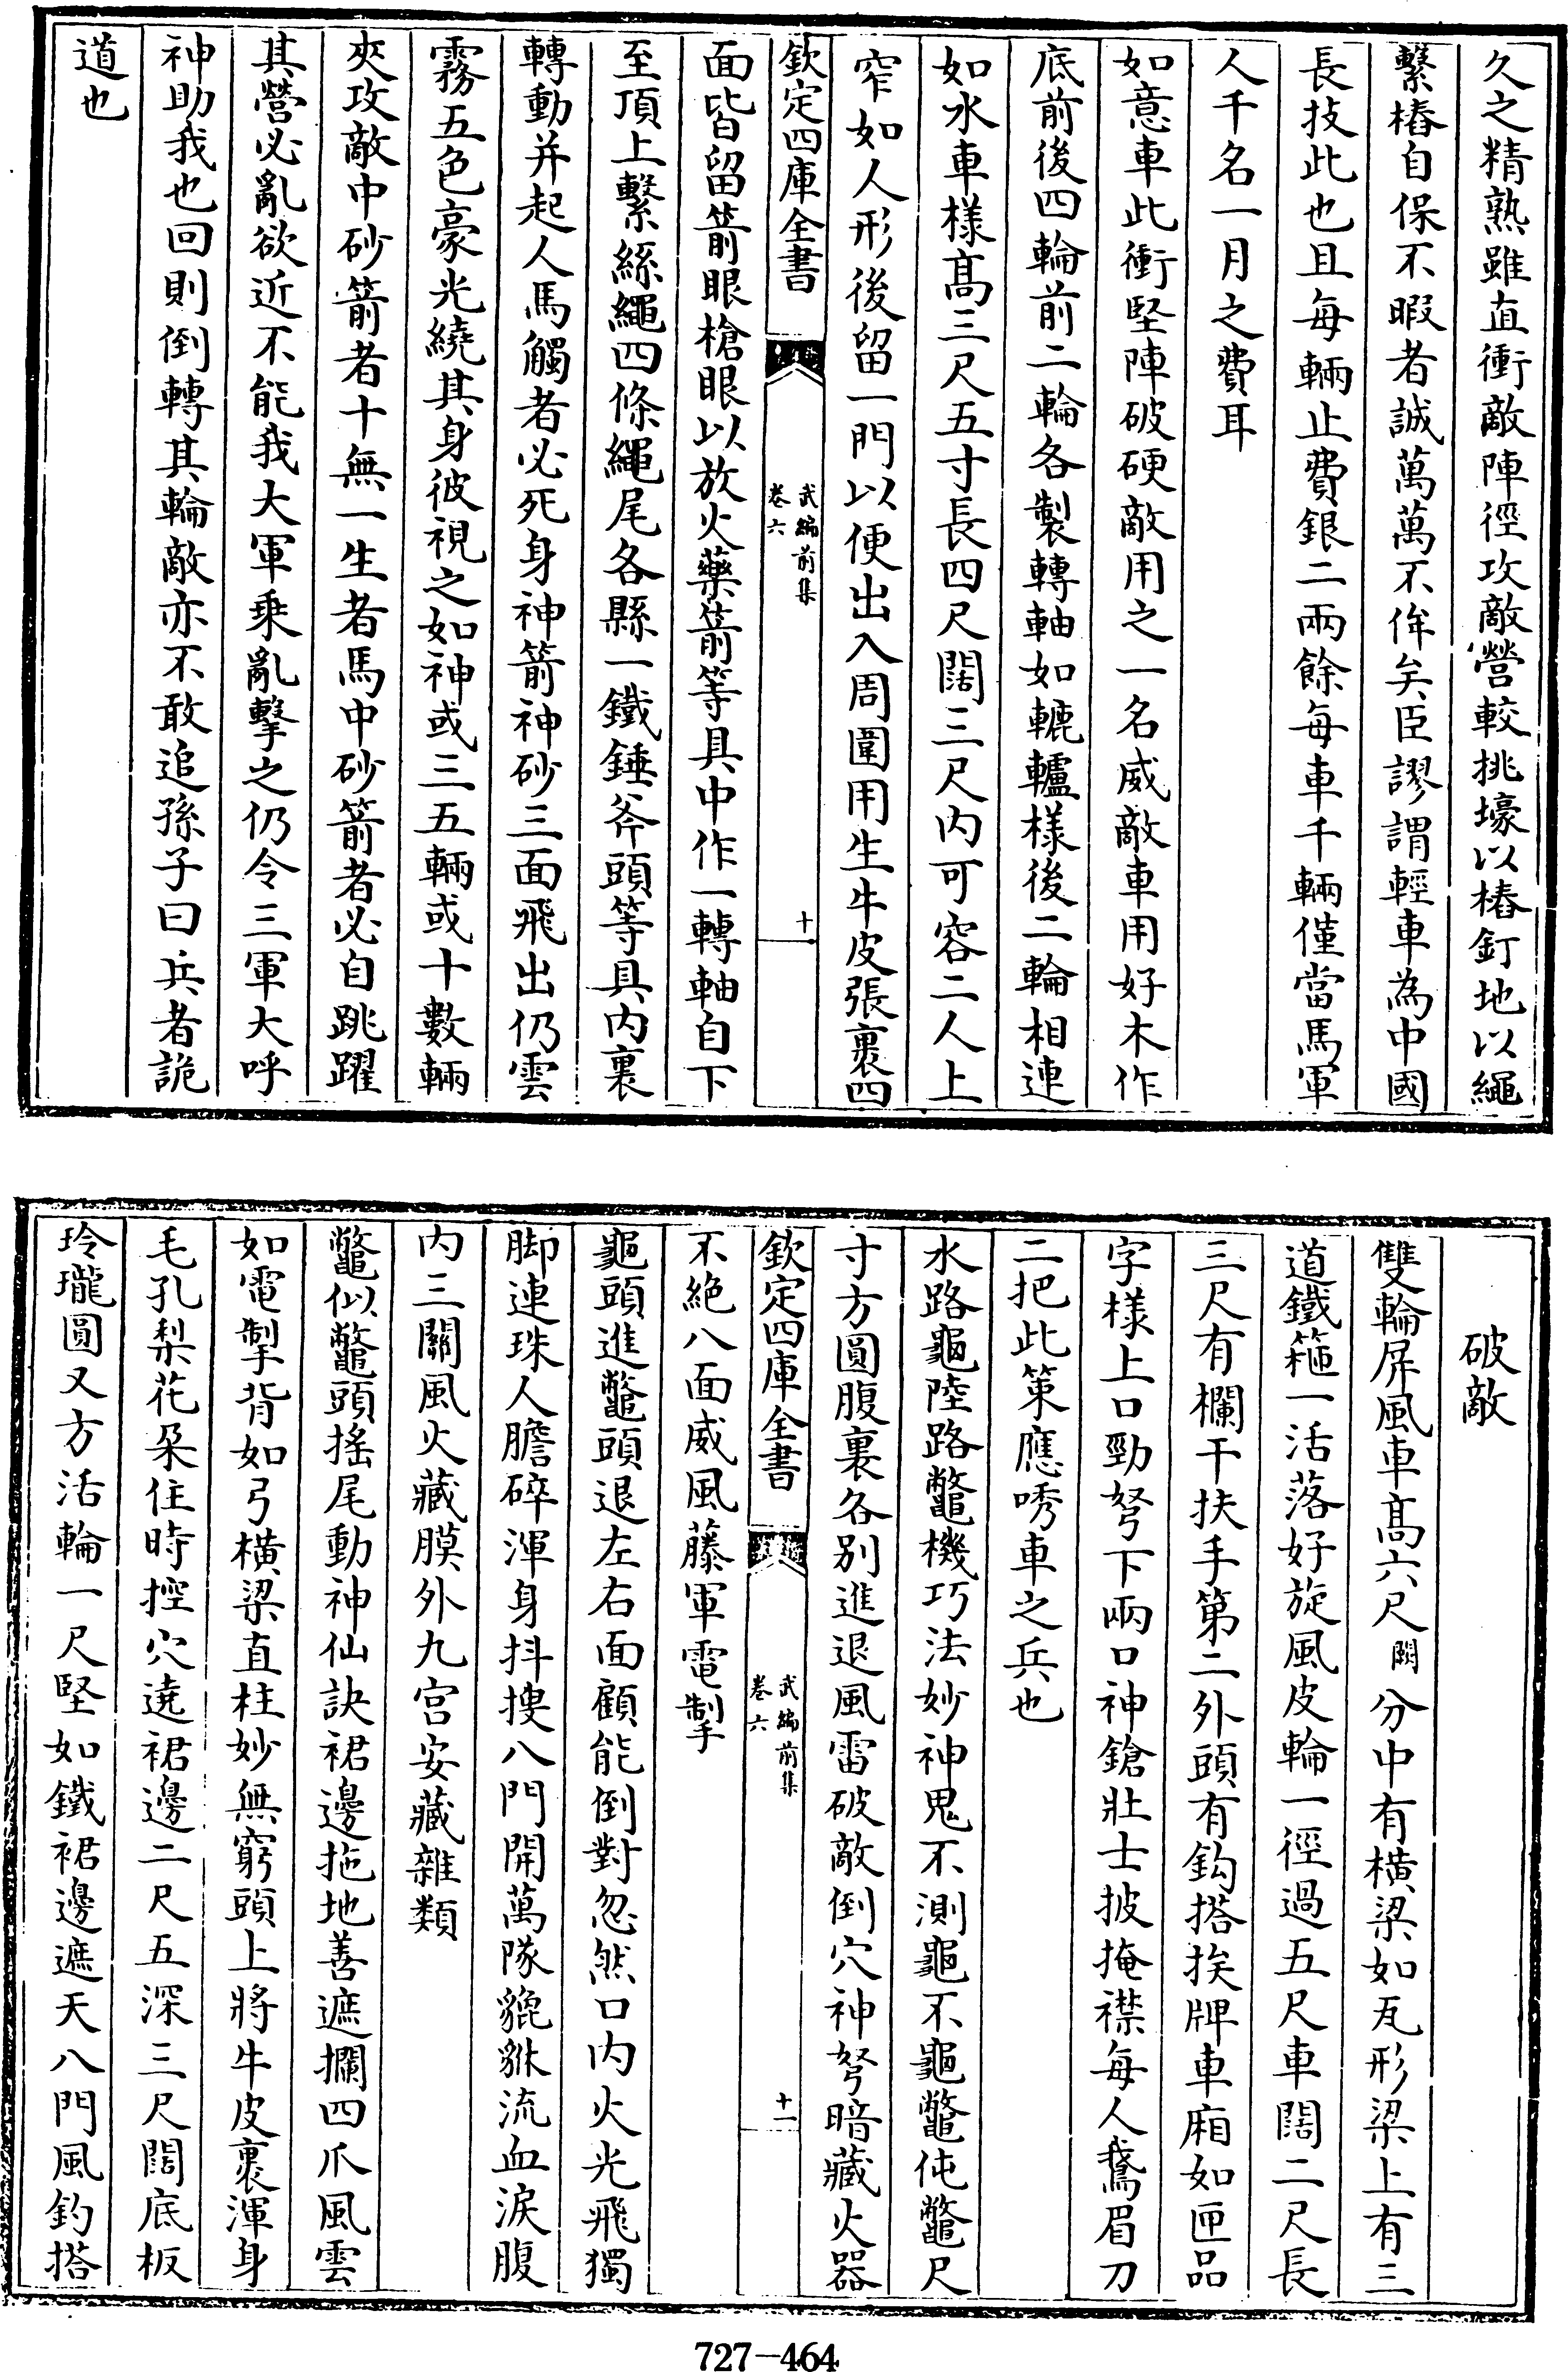 久之精熟雖直衝敵陣徑攻敵營較挑壕以樁釘地以繩
繫樁自保不暇者誠萬萬不侔矣臣謬謂輕車為中國
長技此也且每輛止費銀二兩餘每車千輛僅當馬軍
人千名一月之費耳
如意車此衝堅陣破硬敵用之一名威敵車用好木作
底前後四輪前二輪各製轉軸如轆轤樣後二輪相連
如水車樣高三尺五寸長四尺闊三尺内可容二人上
窄如人形後留一門以便出入周圍用生牛皮張裹四
欽定四庫全書
武編前集
卷六
十
面皆留箭眼槍眼以放火藥箭等具中作一轉軸自下
至頂上繫絲繩四條繩尾各縣一鐵錘斧頭等具内裏
轉動并起人馬觸者必死身神箭神砂三面飛出仍雲
霧五色豪光繞其身彼視之如神或三五輛或十數輛
夾攻敵中砂箭者十無一生者馬中砂箭者必自跳躍
其營必亂欲近不能我大軍乘亂擊之仍令三軍大呼
神助我也回則倒轉其輪敵亦不敢追孫子曰兵者詭
道也
破敵
雙輪屏風車高六尺闕分中有橫梁如瓦形梁上有三
道鐵箍一活落好旋風皮輪一徑過五尺車闊二尺長
三尺有欄干扶手第二外頭有鈎搭挨牌車廂如匣品
字樣上口勁弩下兩口神鎗壯士披掩襟每人鵞眉刀
二把此策應哨車之兵也
水路龜陸路鼈機巧法妙神鬼不測龜不龜鼈伅鼈尺
寸方圓腹裏各別進退風雷破敵倒穴神弩暗藏火器
欽定四庫全書
武編前集
卷六
十一
不絶八面威風藤軍電掣
龜頭進鼈頭退左右面顧能倒對忽然口内火光飛獨
脚連珠人膽碎渾身抖摟八門開萬隊貔貅流血淚腹
内三關風火藏膜外九宮安藏雜類
鼈似鼈頭搖尾動神仙訣裙邊拖地善遮攔四爪風雲
如電掣背如弓橫梁直柱妙無窮頭上將牛皮裹渾身
毛孔梨花朶住時控穴遶裙邊二尺五深三尺闊底板
玲瓏圓又方活輪一尺堅如鐵裙邊遮天八門風釣搭
727-464